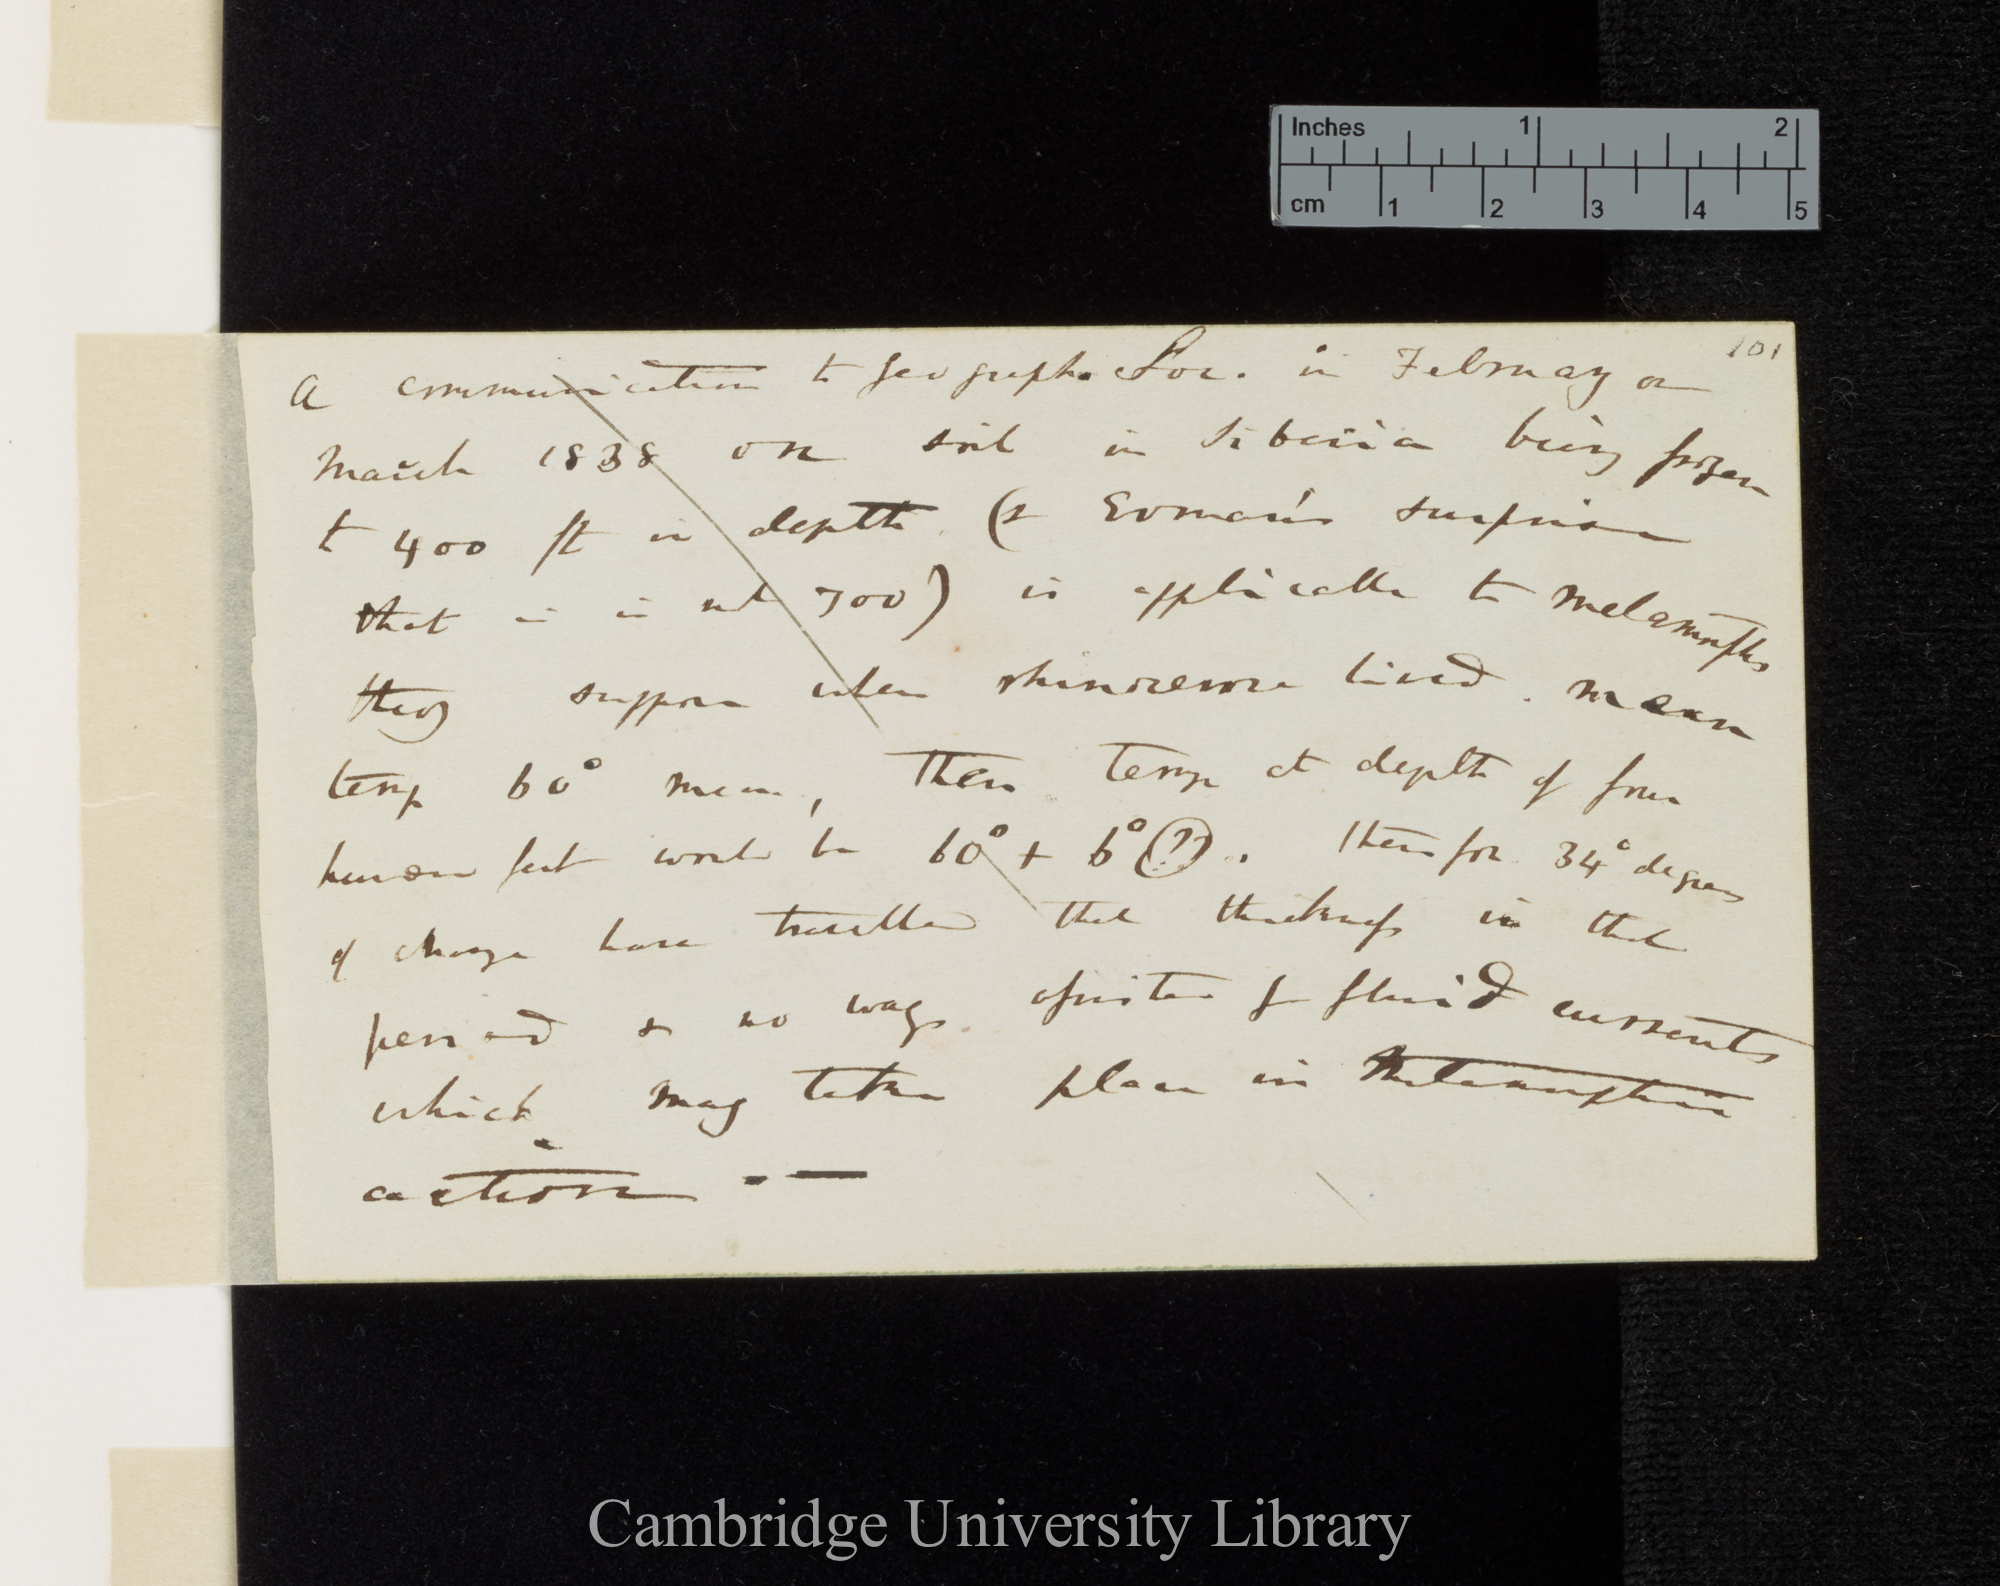 Inches 1 2
cm 1 2 3 4 5
101
A communication to Geograph. Soc. in February or
March 1838 on soil in Siberia being frozen
to 400 ft in depth (& Erman's surprise
that it is not 700) is applicable to Metamorphic
theory suppose when rhinoceros lived. mean
temp 60° mean, then temp at depth of four
hundred feet would be 60° + 6° (?). therefore 34° degrees
of change have travelled that thickness in that
period & no ways opposite for fluid currents
which may take place in Metamorphic
action. —
Cambridge University Library